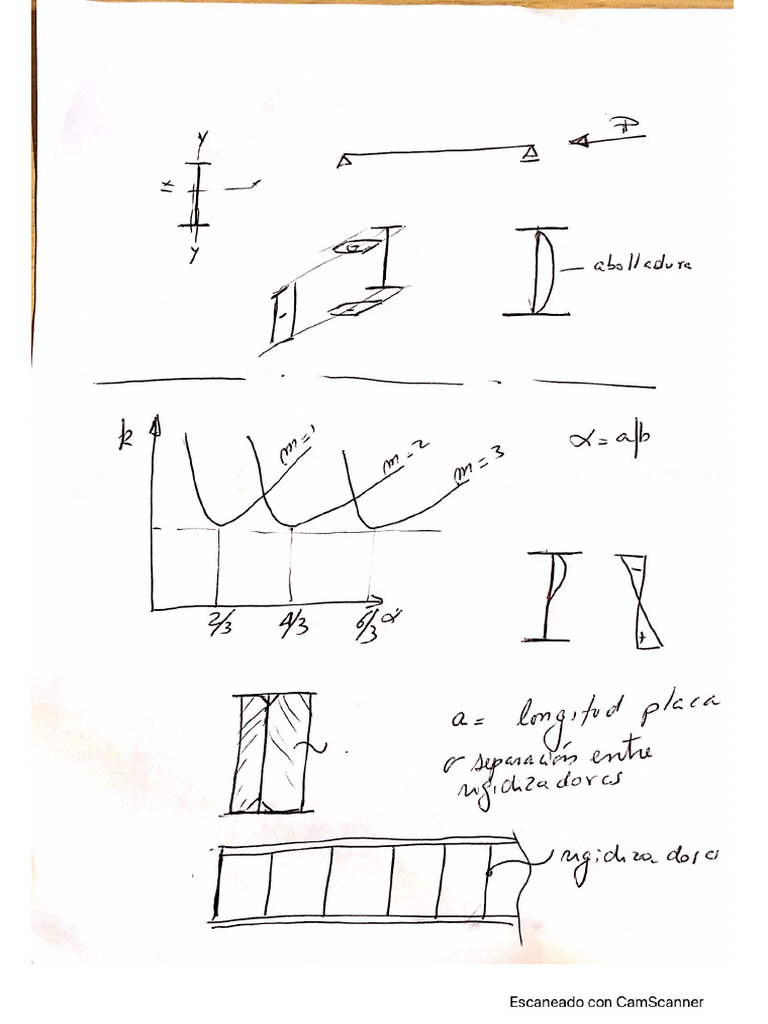 y
P
x
y
abolladura
k
m=1
m=2
m=3
α=a/b
2/3
4/3
6/3
α
a= longitud placa
o separación entre
rigidizadores
rigidizadores
Escaneado con CamScanner